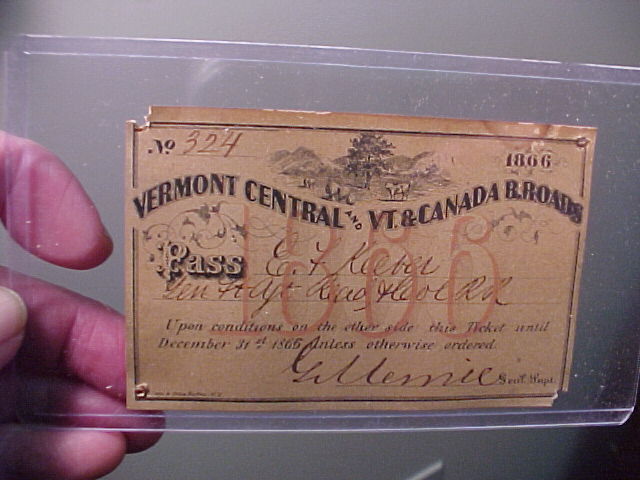 No 324
1866
VERMONT CENTRAL AND VT. & CANADA R.ROADS
1866
Pass E. F.
Gen Agt Read & Col RR
Upon conditions on the other side this Ticket until
December 31st 1866 Unless otherwise ordered.
G. Merrill Genl. Supt.